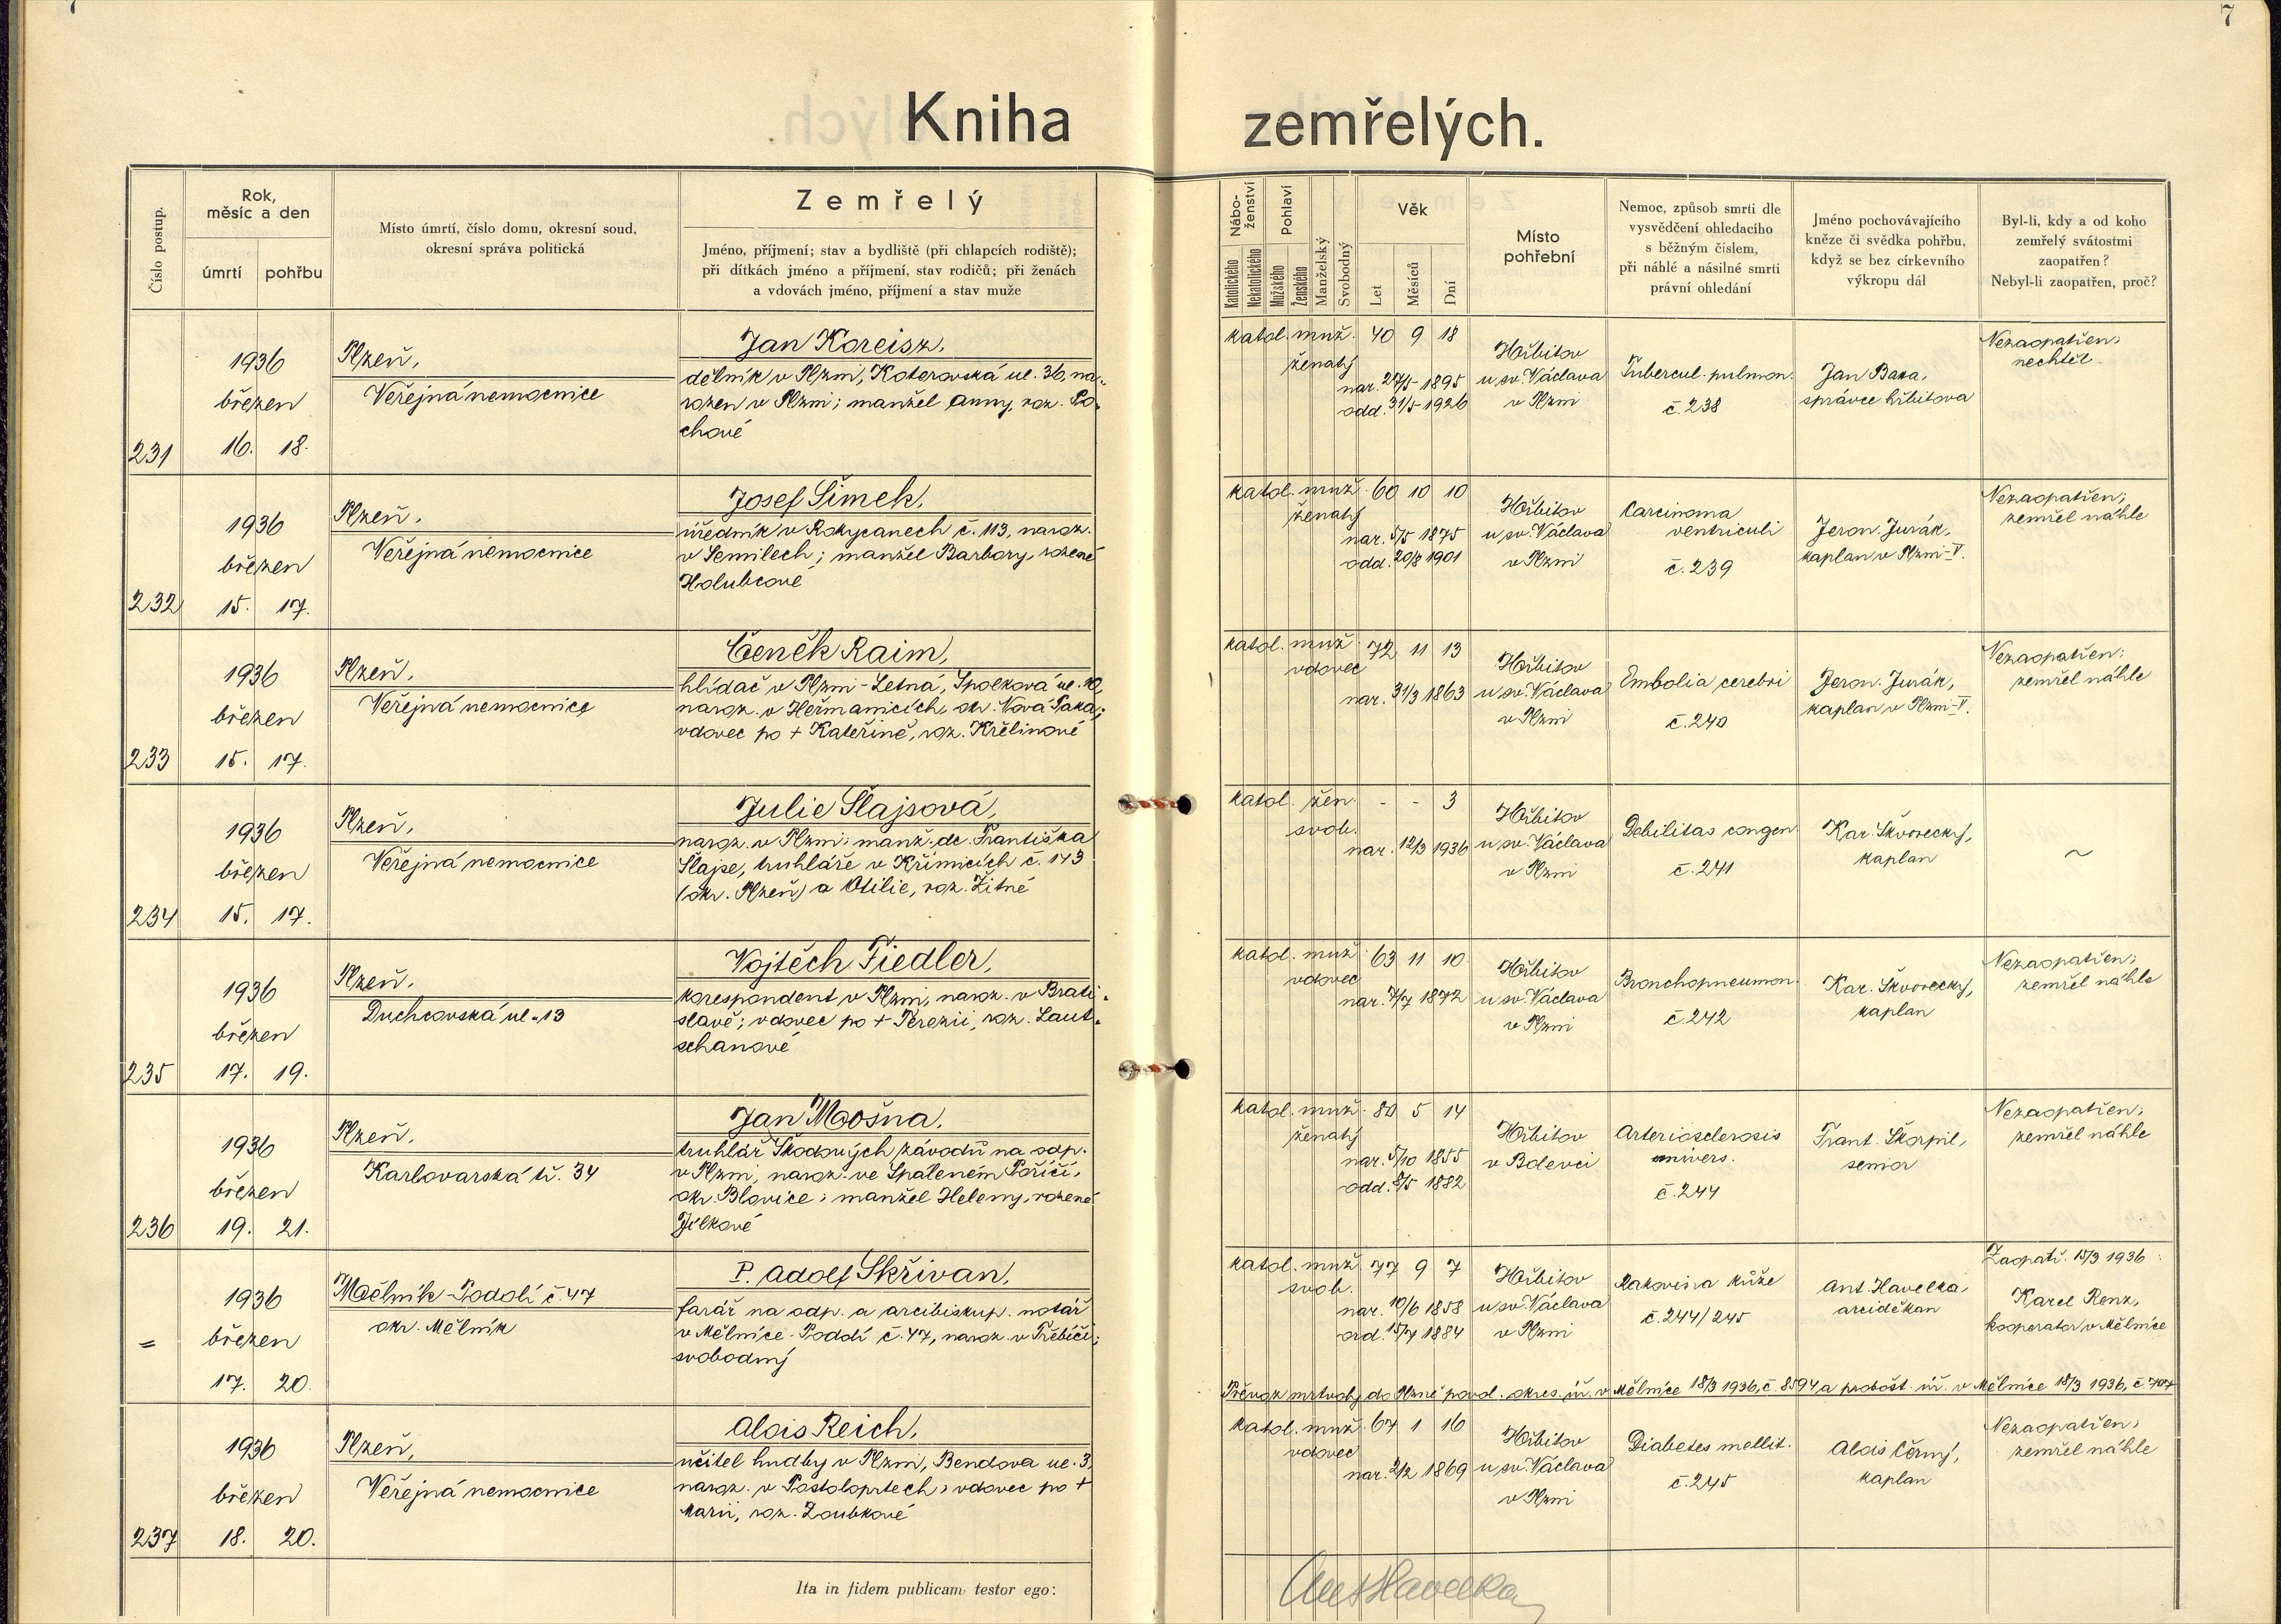 7
Kniha zemřelých.
Číslo postup.
Rok,
měsíc a den
úmrtí
pohřbu
Místo úmrtí, číslo domu, okresní soud,
okresní správa politická
Zemřelý
Jméno, příjmení; stav a bydliště (při chlapcích rodiště);
při dítkách jméno a příjmení, stav rodičů; při ženách
a vdovách jméno, příjmení a stav muže
Nábo-
ženství
Katolického
Nekatolického
Pohlaví
Mužského
Ženského
Manželský
Svobodný
Věk
Let
Měsíců
Dní
Místo
pohřební
Nemoc, způsob smrti dle
vysvědčení ohledacího
s běžným číslem,
při náhlé a násilné smrti
právní ohledání
Jméno pochovávajícího
kněze či svědka pohřbu,
když se bez církevního
výkropu dál
Byl-li, kdy a od koho
zemřelý svátostmi
zaopatřen?
Nebyl-li zaopatřen, proč?
231
1936
březen
16. 18.
Plzeň,
Veřejná nemocnice
Jan Koreisz,
dělník v Plzni, Koterovská ul. 36, na-
rozen v Plzni; manžel Anny, roz. Po-
chové
katol. muž. 40 9 18
ženatý
nar. 27/5 1895
odd. 31/5 1926
Hřbitov
u sv. Václava
v Plzni
Tubercul. pulmon.
č. 238
Jan Baxa,
správce hřbitova
Nezaopatřen;
nechtěl.
232
1936
březen
15. 17.
Plzeň,
Veřejná nemocnice
Josef Šimek,
úředník v Rokycanech č. 113, naroz.
v Semilech; manžel Barbory, rozené
Holubcové
katol. muž. 60 10 10
ženatý
nar. 5/5 1875
odd. 20/8 1901
Hřbitov
u sv. Václava
v Plzni
Carcinoma
ventriculi
č. 239
Jeron. Jurák,
kaplan v Plzni-V.
Nezaopatřen;
zemřel náhle
233
1936
březen
15. 17.
Plzeň,
Veřejná nemocnice
Čeněk Raim,
hlídač v Plzni-Letná, Spolková ul. 10,
naroz. v Heřmanicích, okr. Nová Paka;
vdovec po + Kateřině, roz. Křelinové
katol. muž. 72 11 13
vdovec
nar. 31/3 1863
Hřbitov
u sv. Václava
v Plzni
Embolia cerebri
č. 240
Jeron. Jurák,
kaplan v Plzni-V.
Nezaopatřen;
zemřel náhle
234
1936
březen
15. 17.
Plzeň,
Veřejná nemocnice
Julie Šlajsová,
naroz. v Plzni; manž. dc. Františka
Šlajse, truhláře v Křimicích č. 143
(okr. Plzeň) a Otilie, roz. Žitné
katol. žen. - - 3
svob.
nar. 12/3 1936
Hřbitov
u sv. Václava
v Plzni
Debilitas congen.
č. 241
Kar. Škvorecký,
kaplan
~
235
1936
březen
17. 19.
Plzeň,
Duchcovská ul. 13
Vojtěch Fiedler,
korespondent v Plzni, naroz. v Brati-
slavě; vdovec po + Terezii, roz. Laut-
schanové
katol. muž. 63 11 10
vdovec
nar. 7/7 1872
Hřbitov
u sv. Václava
v Plzni
Bronchopneumon.
č. 242
Kar. Škvorecký,
kaplan
Nezaopatřen;
zemřel náhle
236
1936
březen
19. 21.
Plzeň,
Karlovarská tř. 34
Jan Mošna,
truhlář Škodových závodů na odp.
v Plzni, naroz. ve Spáleném Poříčí,
okr. Blovice; manžel Heleny, rozené
Jílkové
katol. muž. 80 5 14
ženatý
nar. 5/10 1855
odd. 8/5 1882
Hřbitov
v Bolevci
Arteriosclerosis
univers.
č. 244
Frant. Škorpil,
senior
Nezaopatřen;
zemřel náhle
=
1936
březen
17. 20.
Mělník-Podolí č. 47
okr. Mělník
P. Adolf Skřivan,
farář na odp. a arcibiskup. notář
v Mělníce-Podolí č. 47, naroz. v Třebíči;
svobodný
katol. muž. 77 9 7
svob.
nar. 10/6 1858
ord. 15/7 1884
Hřbitov
u sv. Václava
v Plzni
Rakovina kůže
č. 244/245
Ant. Havelka,
arciděkan
Zaopatř. 15/3 1936
Karel Renz,
kooperator v Mělníce
Převoz mrtvoly do Plzně povol. okres. úř. v Mělníce 18/3 1936, č. 8594 a probošt. úř. v Mělníce 18/3 1936, č. 707
237
1936
březen
18. 20.
Plzeň,
Veřejná nemocnice
Alois Reich,
učitel hudby v Plzni, Bendova ul. 3,
naroz. v Postoloprtech; vdovec po +
Marii, roz. Zoubkové
katol. muž. 67 1 16
vdovec
nar. 2/2 1869
Hřbitov
u sv. Václava
v Plzni
Diabetes mellit.
č. 245
Alois Černý,
kaplan
Nezaopatřen;
zemřel náhle
Ita in fidem publicam testor ego:
Ant Havelka